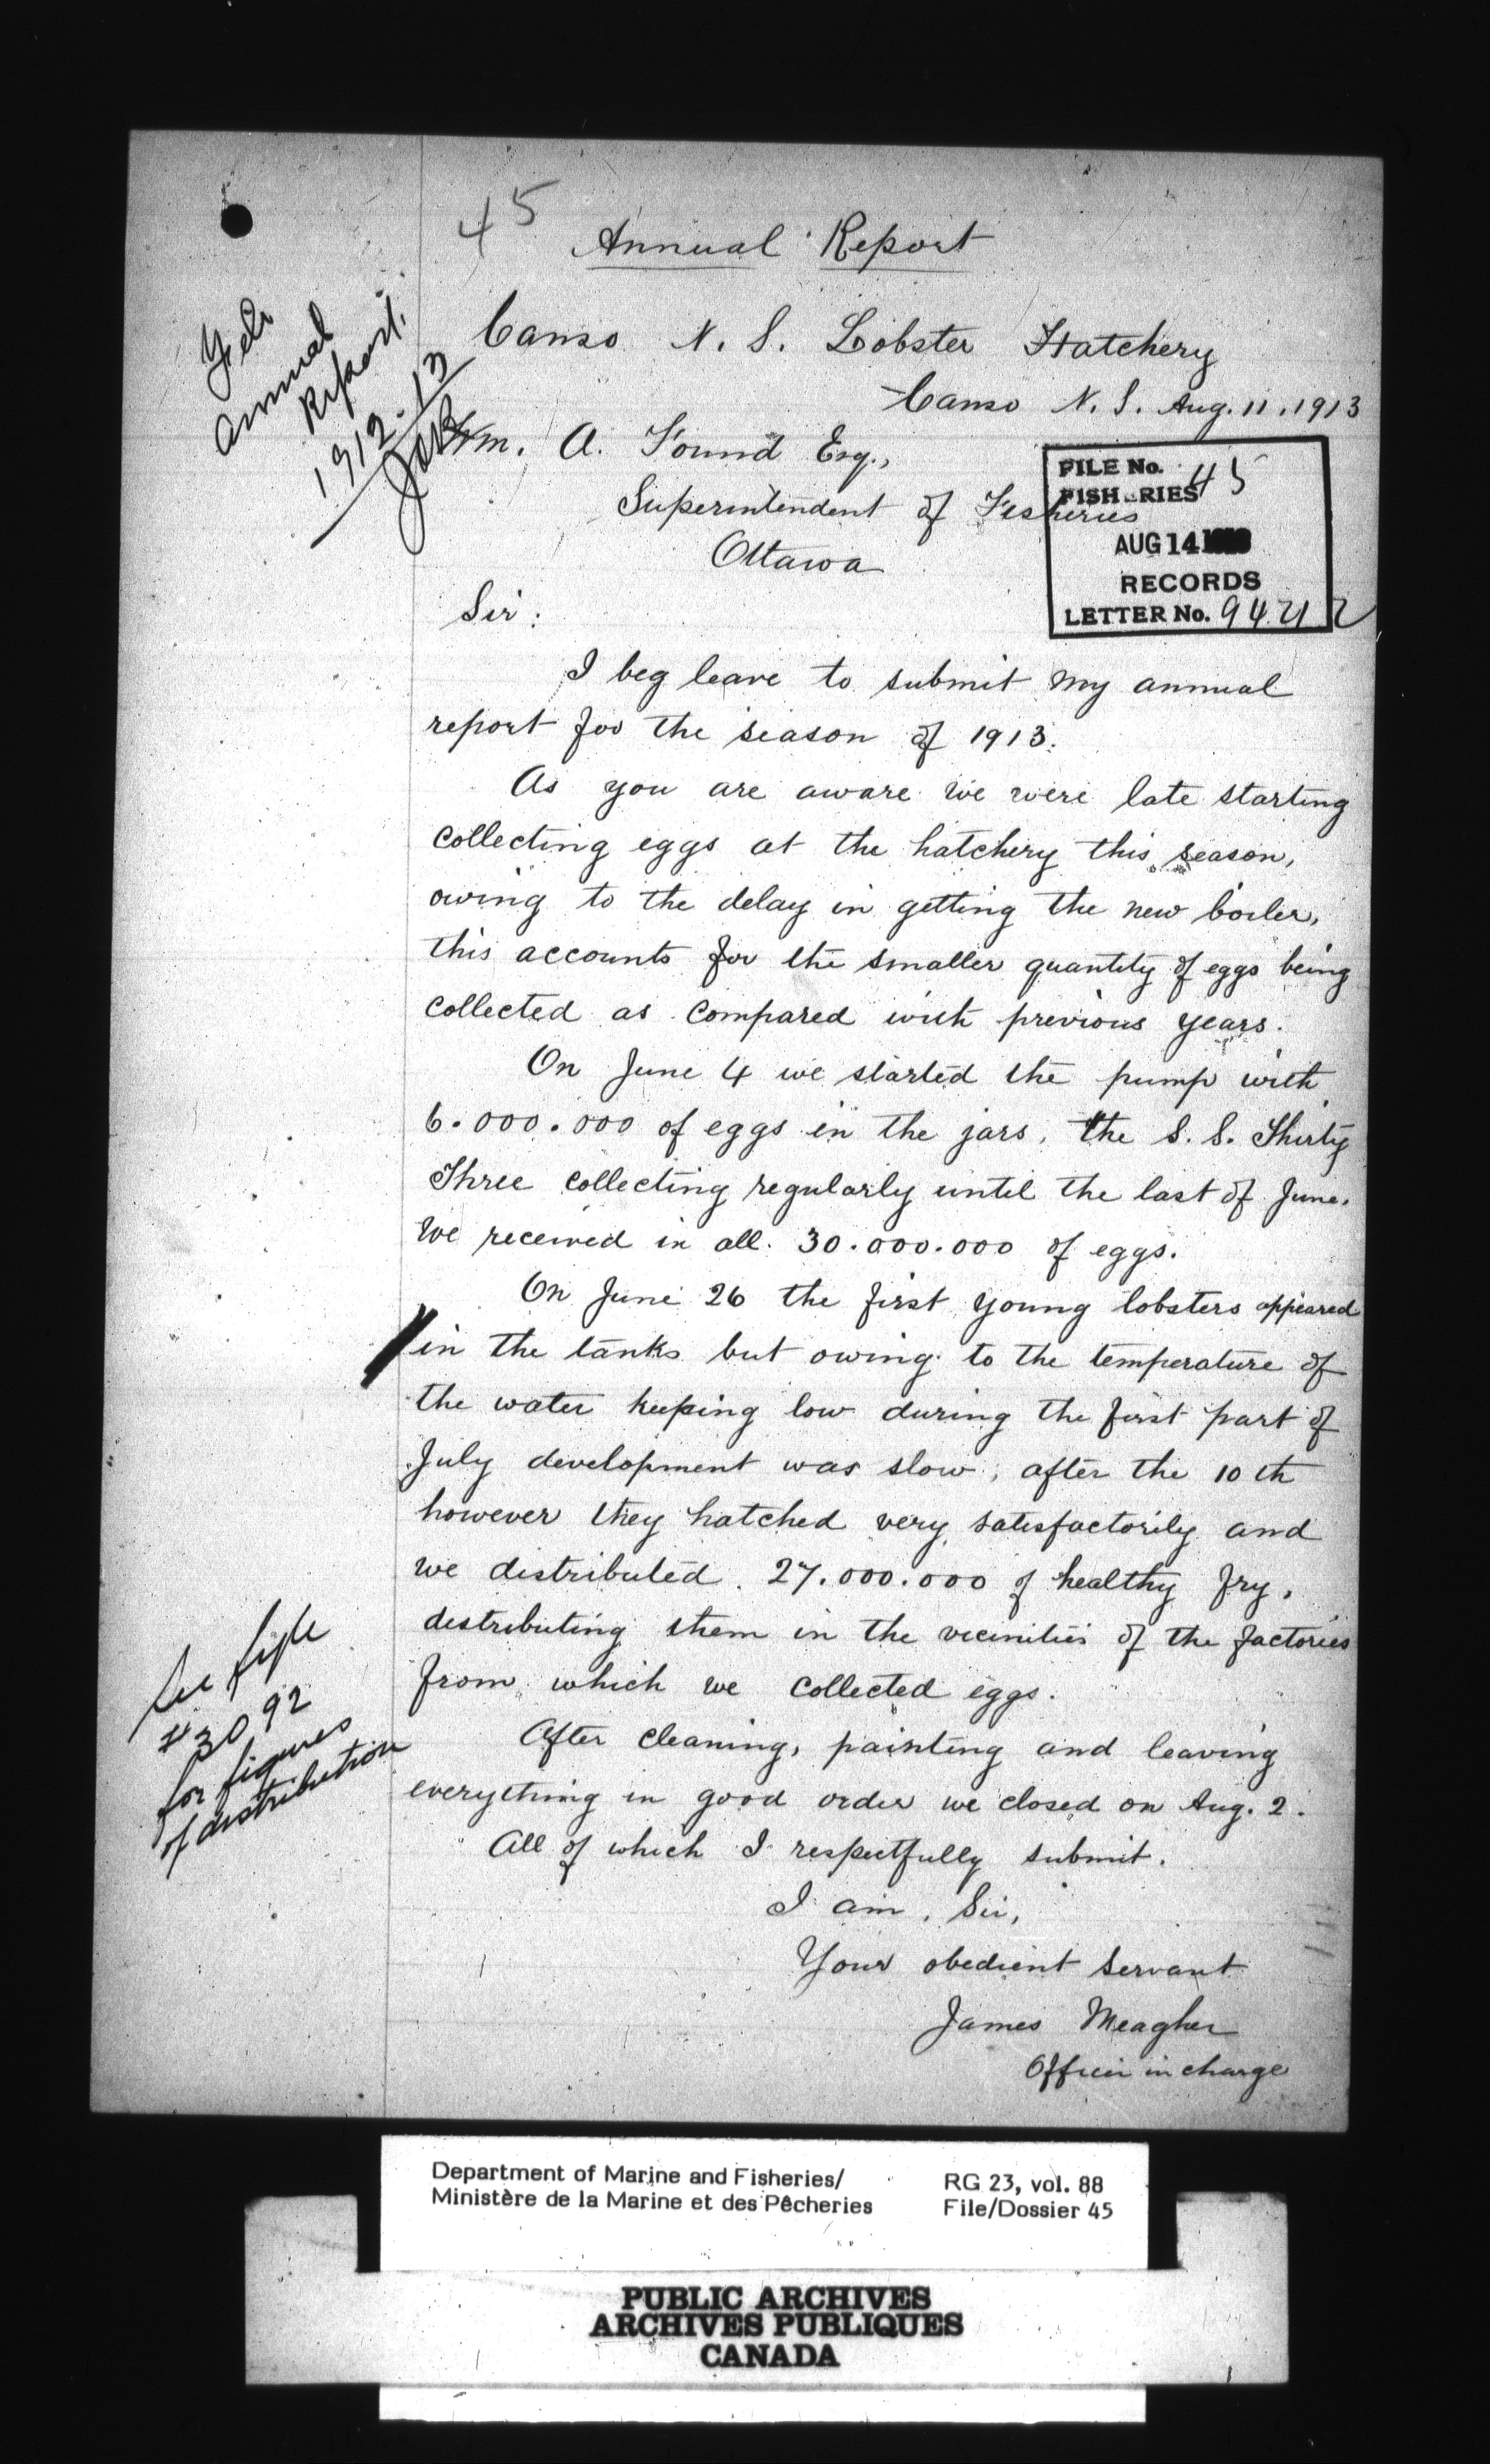 45
Annual Report
Canso N. S. Lobster Hatchery
Canso N. S. Aug. 11, 1913
annual
Report.
1912-13
Wm. A. Found Esq.,
Superintendent of Fisheries
Ottawa
FILE No. 45
FISHERIES
AUG 14
RECORDS
LETTER No.
Sir:
I beg leave to submit my annual
report for the season of 1913.
As you are aware we were late starting
collecting eggs at the hatchery this season,
owing to the delay in getting the new boiler,
this accounts for the smaller quantity of eggs being
collected as compared with previous years.
On June 4 we started the pump with
6.000.000 of eggs in the jars, the S. S. Thirty
Three collecting regularly until the last of June.
We received in all 30.000.000 of eggs.
On June 26 the first young lobsters appeared
in the tanks but owing to the temperature of
the water keeping low during the first part of
July development was slow, after the 10 th
however they hatched very satisfactorily and
we distributed 27.000.000 of healthy fry,
distributing them in the vicinities of the factories
from which we collected eggs.
See file
#3092
for figures
of distribution
After cleaning, painting and leaving
everything in good order we closed on Aug. 2.
All of which I respectfully submit.
I am, Sir,
Your obedient servant
James Meagher
Officer in charge
Department of Marine and Fisheries/
Ministère de la Marine et des Pêcheries
RG 23, vol. 88
File/Dossier 45
PUBLIC ARCHIVES
ARCHIVES PUBLIQUES
CANADA